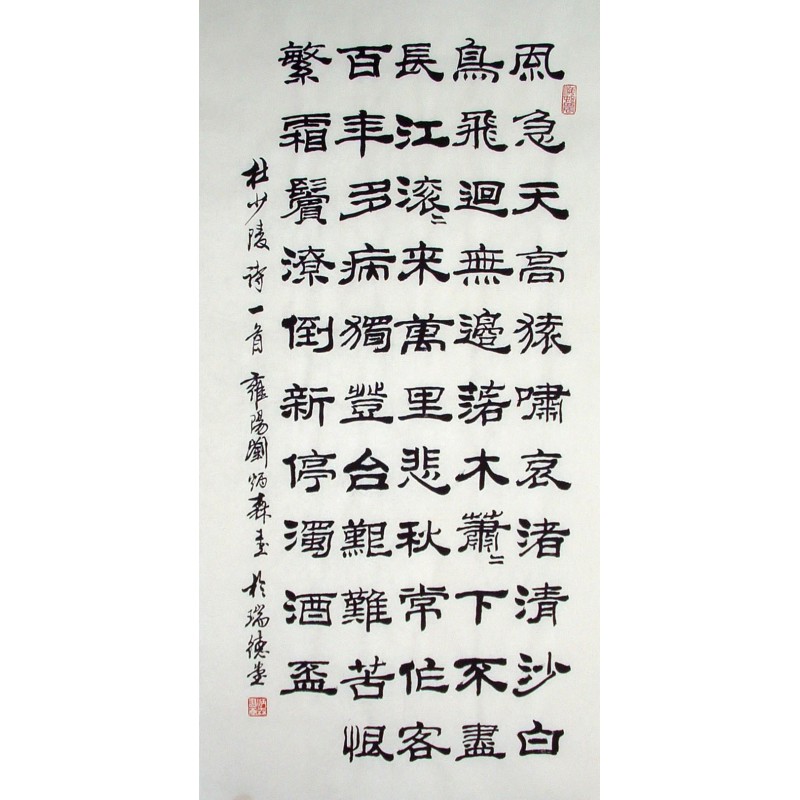 風急天高猿嘯哀渚清沙白
鳥飛迴無邊落木蕭〻下不盡
長江滚〻来萬里悲秋常作客
百年多病獨登台艱難苦恨
繁霜鬢潦倒新停濁酒盃
杜少陵詩一首 雍陽劉炳森書 於瑞德堂